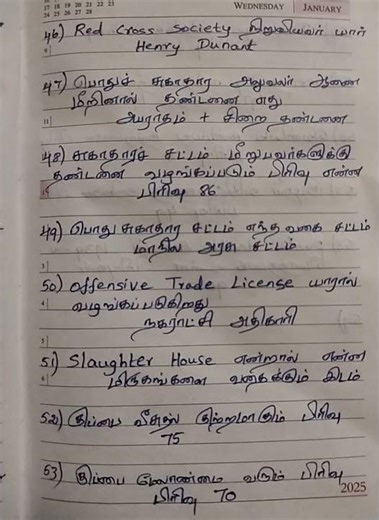 WEDNESDAY JANUARY
17 18 19 20 21 22 23
24 25 26 27 28
46) Red Cross Society நிறுவியவர் யார்
Henry Dunant
47) பொதுச் சுகாதார அலுவலர் ஆணை
மீறினால் தண்டனை எது
அபராதம் + சிறை தண்டனை
48) சுகாதாரச் சட்டம் மீறுபவர்களுக்கு
தண்டனை வழங்கப்படும் பிரிவு என்ன
பிரிவு 86
49) பொது சுகாதார சட்டம் எந்த வகை சட்டம்
மாநில அரசு சட்டம்
50) Offensive Trade License யாரால்
வழங்கப்படுகிறது
நகராட்சி அதிகாரி
51) Slaughter House என்றால் என்ன
மிருகங்களை வதைக்கும் இடம்
52) குப்பை வீசுதல் குற்றமாகும் பிரிவு
75
53) குப்பை மேலாண்மை வரும் பிரிவு
பிரிவு 70
2025